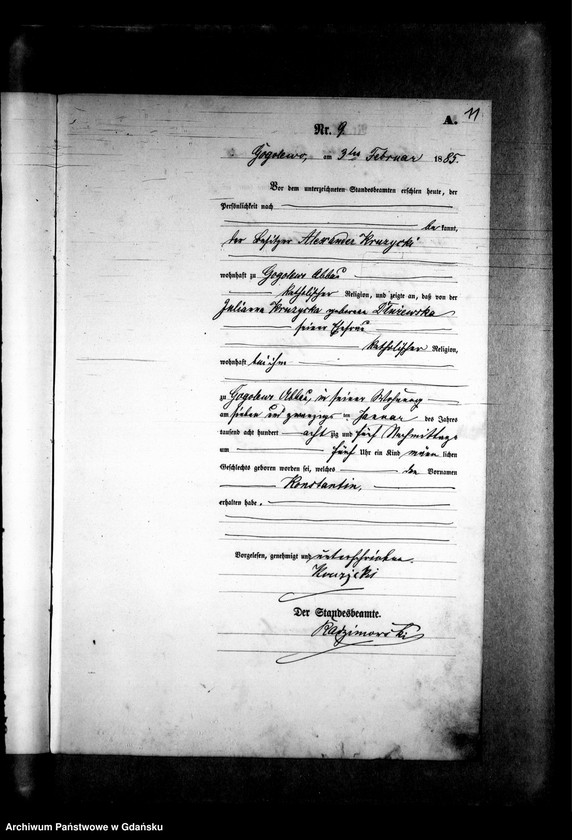 11
A.
Nr. 9
Gogolewo, am 3ten Februar 1885.
Vor dem unterzeichneten Standesbeamten erschien heute, der
Persönlichkeit nach
be kannt,
der Besitzer Alexander Kruzycki
wohnhaft zu Gogolewo Abbau
katholischer Religion, und zeigte an, daß von der
Julianna Kruzycka geborene
seiner Ehefrau
katholischer Religion,
wohnhaft bei ihm
zu Gogolewo Abbau, in seiner Wohnung
am sieben und zwanzigsten Januar des Jahres
tausend acht hundert acht zig und fünf Nachmittags
um fünf Uhr ein Kind männ lichen
Geschlechts geboren worden sei, welches den Vornamen
Konstantin,
erhalten habe.
Vorgelesen, genehmigt und unterschrieben.
Kruzycki
Der Standesbeamte.
Archiwum Państwowe w Gdańsku